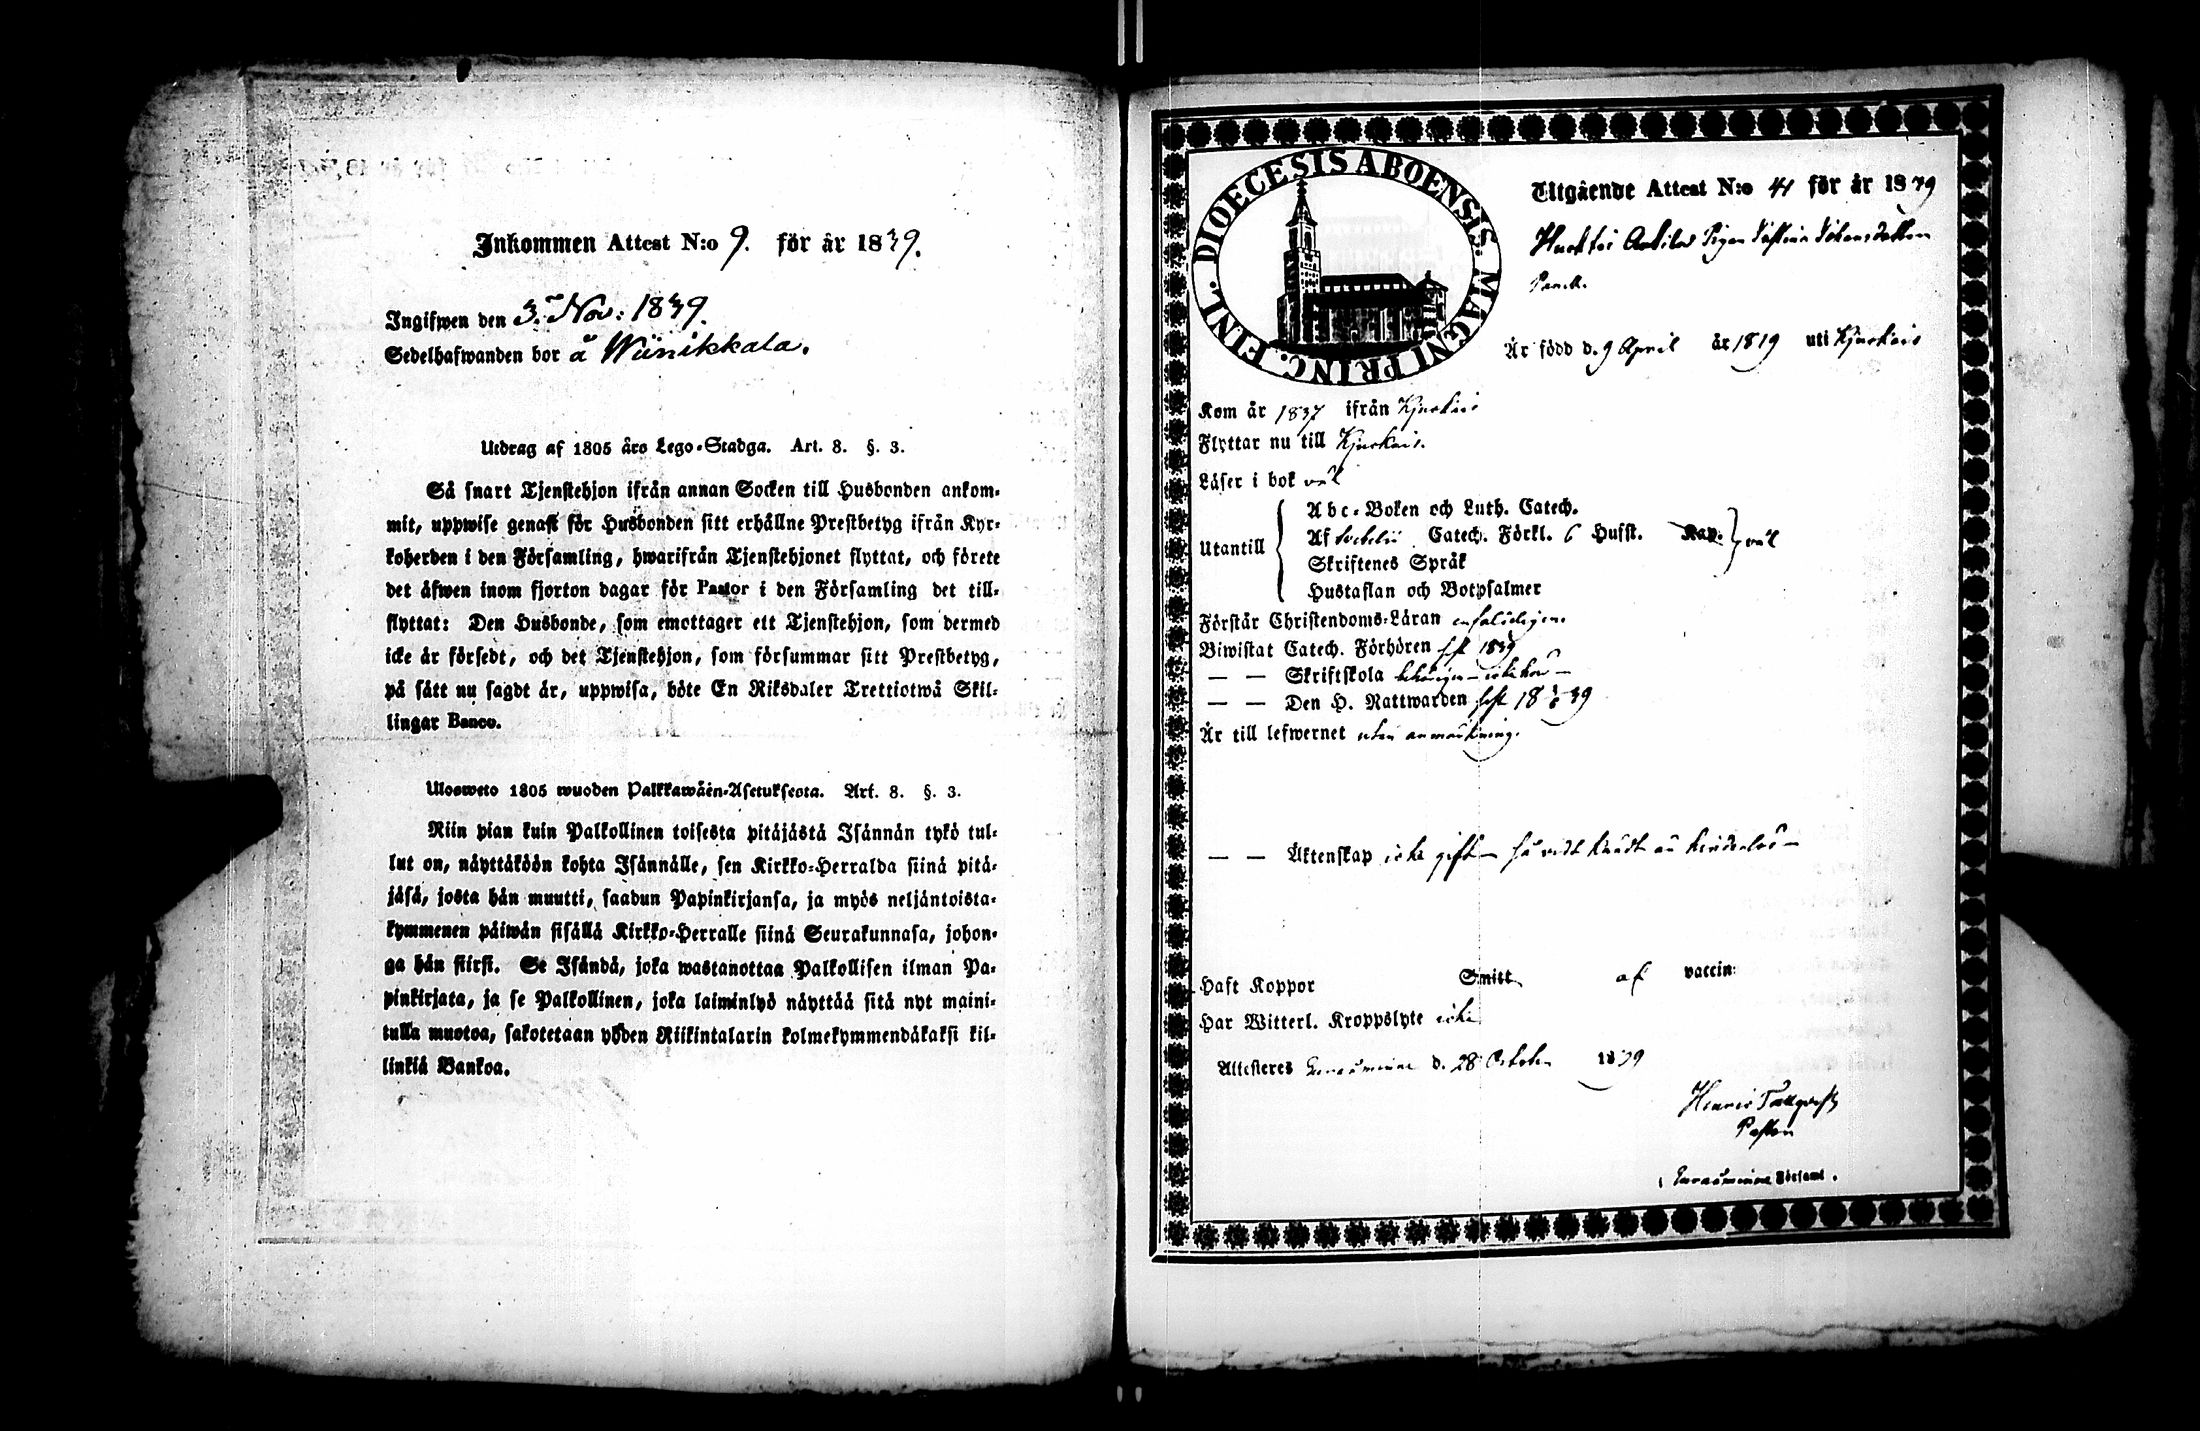 Inkommen Attest N:o 9. för år 1839.
Ingifwen den 3. Nov: 1839.
Sedelhafwanden bor å Wiinikkala.
Utdrag af 1805 års Lego-Stadga. Art. 8. §. 3.
Så snart Tjenstehjon ifrån annan Socken till Husbonden ankom-
mit, uppwise genast för Husbonden sitt erhållne Prestbetyg ifrån Kyr-
koherden i den Församling, hwarifrån Tjenstehjonet flyttat, och förete
det äfwen inom fjorton dagar för Pastor i den Församling det till-
flyttat: Den Husbonde, som emottager ett Tjenstehjon, som dermed
icke är försedt, och det Tjenstehjon, som försummar sitt Prestbetyg,
på sätt nu sagdt är, uppwisa, böte En Riksdaler Trettiotwå Skil-
lingar Banco.
Ulosweto 1805 wuoden Palkkawäen-Asetuksesta. Art. 8. §. 3.
Niin pian kuin Palkollinen toisesta pitäjästä Isännän tykö tul-
lut on, näyttäköön kohta Isännälle, sen Kirkko-Herralda siinä pitä-
jäsä, josta hän muutti, saadun Papinkirjansa, ja myös neljäntoista-
kymmenen päiwän sisällä Kirkko-Herralle siinä Seurakunnasa, johon-
ga hän siirsi. Se Isändä, joka wastanottaa Palkollisen ilman Pa-
pinkirjata, ja se Palkollinen, joka laiminlyö näyttää sitä nyt maini-
tulla muotoa, sakotetaan yhden Riikintalarin kolmekymmendäkaksi kil-
linkiä Bankoa.
DIOECESIS ABOENSIS. MAGNI PRINC. FINL.
Utgående Attest N:o 41 för år 1839
Pigan Johansdotter
Är född d. 9 April år 1819 uti Kjurkais
Kom år 1837 ifrån Kjurkais
Flyttar nu till Kjurkais.
Läser i bok väl
Utantill
Abc-Boken och Luth. Catech.
Af Catech. Förkl. 6 Hufst. Kap. väl
Skriftenes Språk
Hustaflan och Botpsalmer
Förstår Christendoms-Läran enfaldigen.
Biwistat Catech. Förhören sist 1839
— — Skriftskola
— — Den H. Nattwarden sist 18 39
Är till lefwernet utan anmärkning.
— — Äktenskap icke gift – så vidt kändt är hinderlös –
Haft Koppor Smitt af vaccin:
Har Witterl. Kroppslyte icke
Attesteras d. 28 October 1839
Henric Tallqvist
Pastor
Församl.